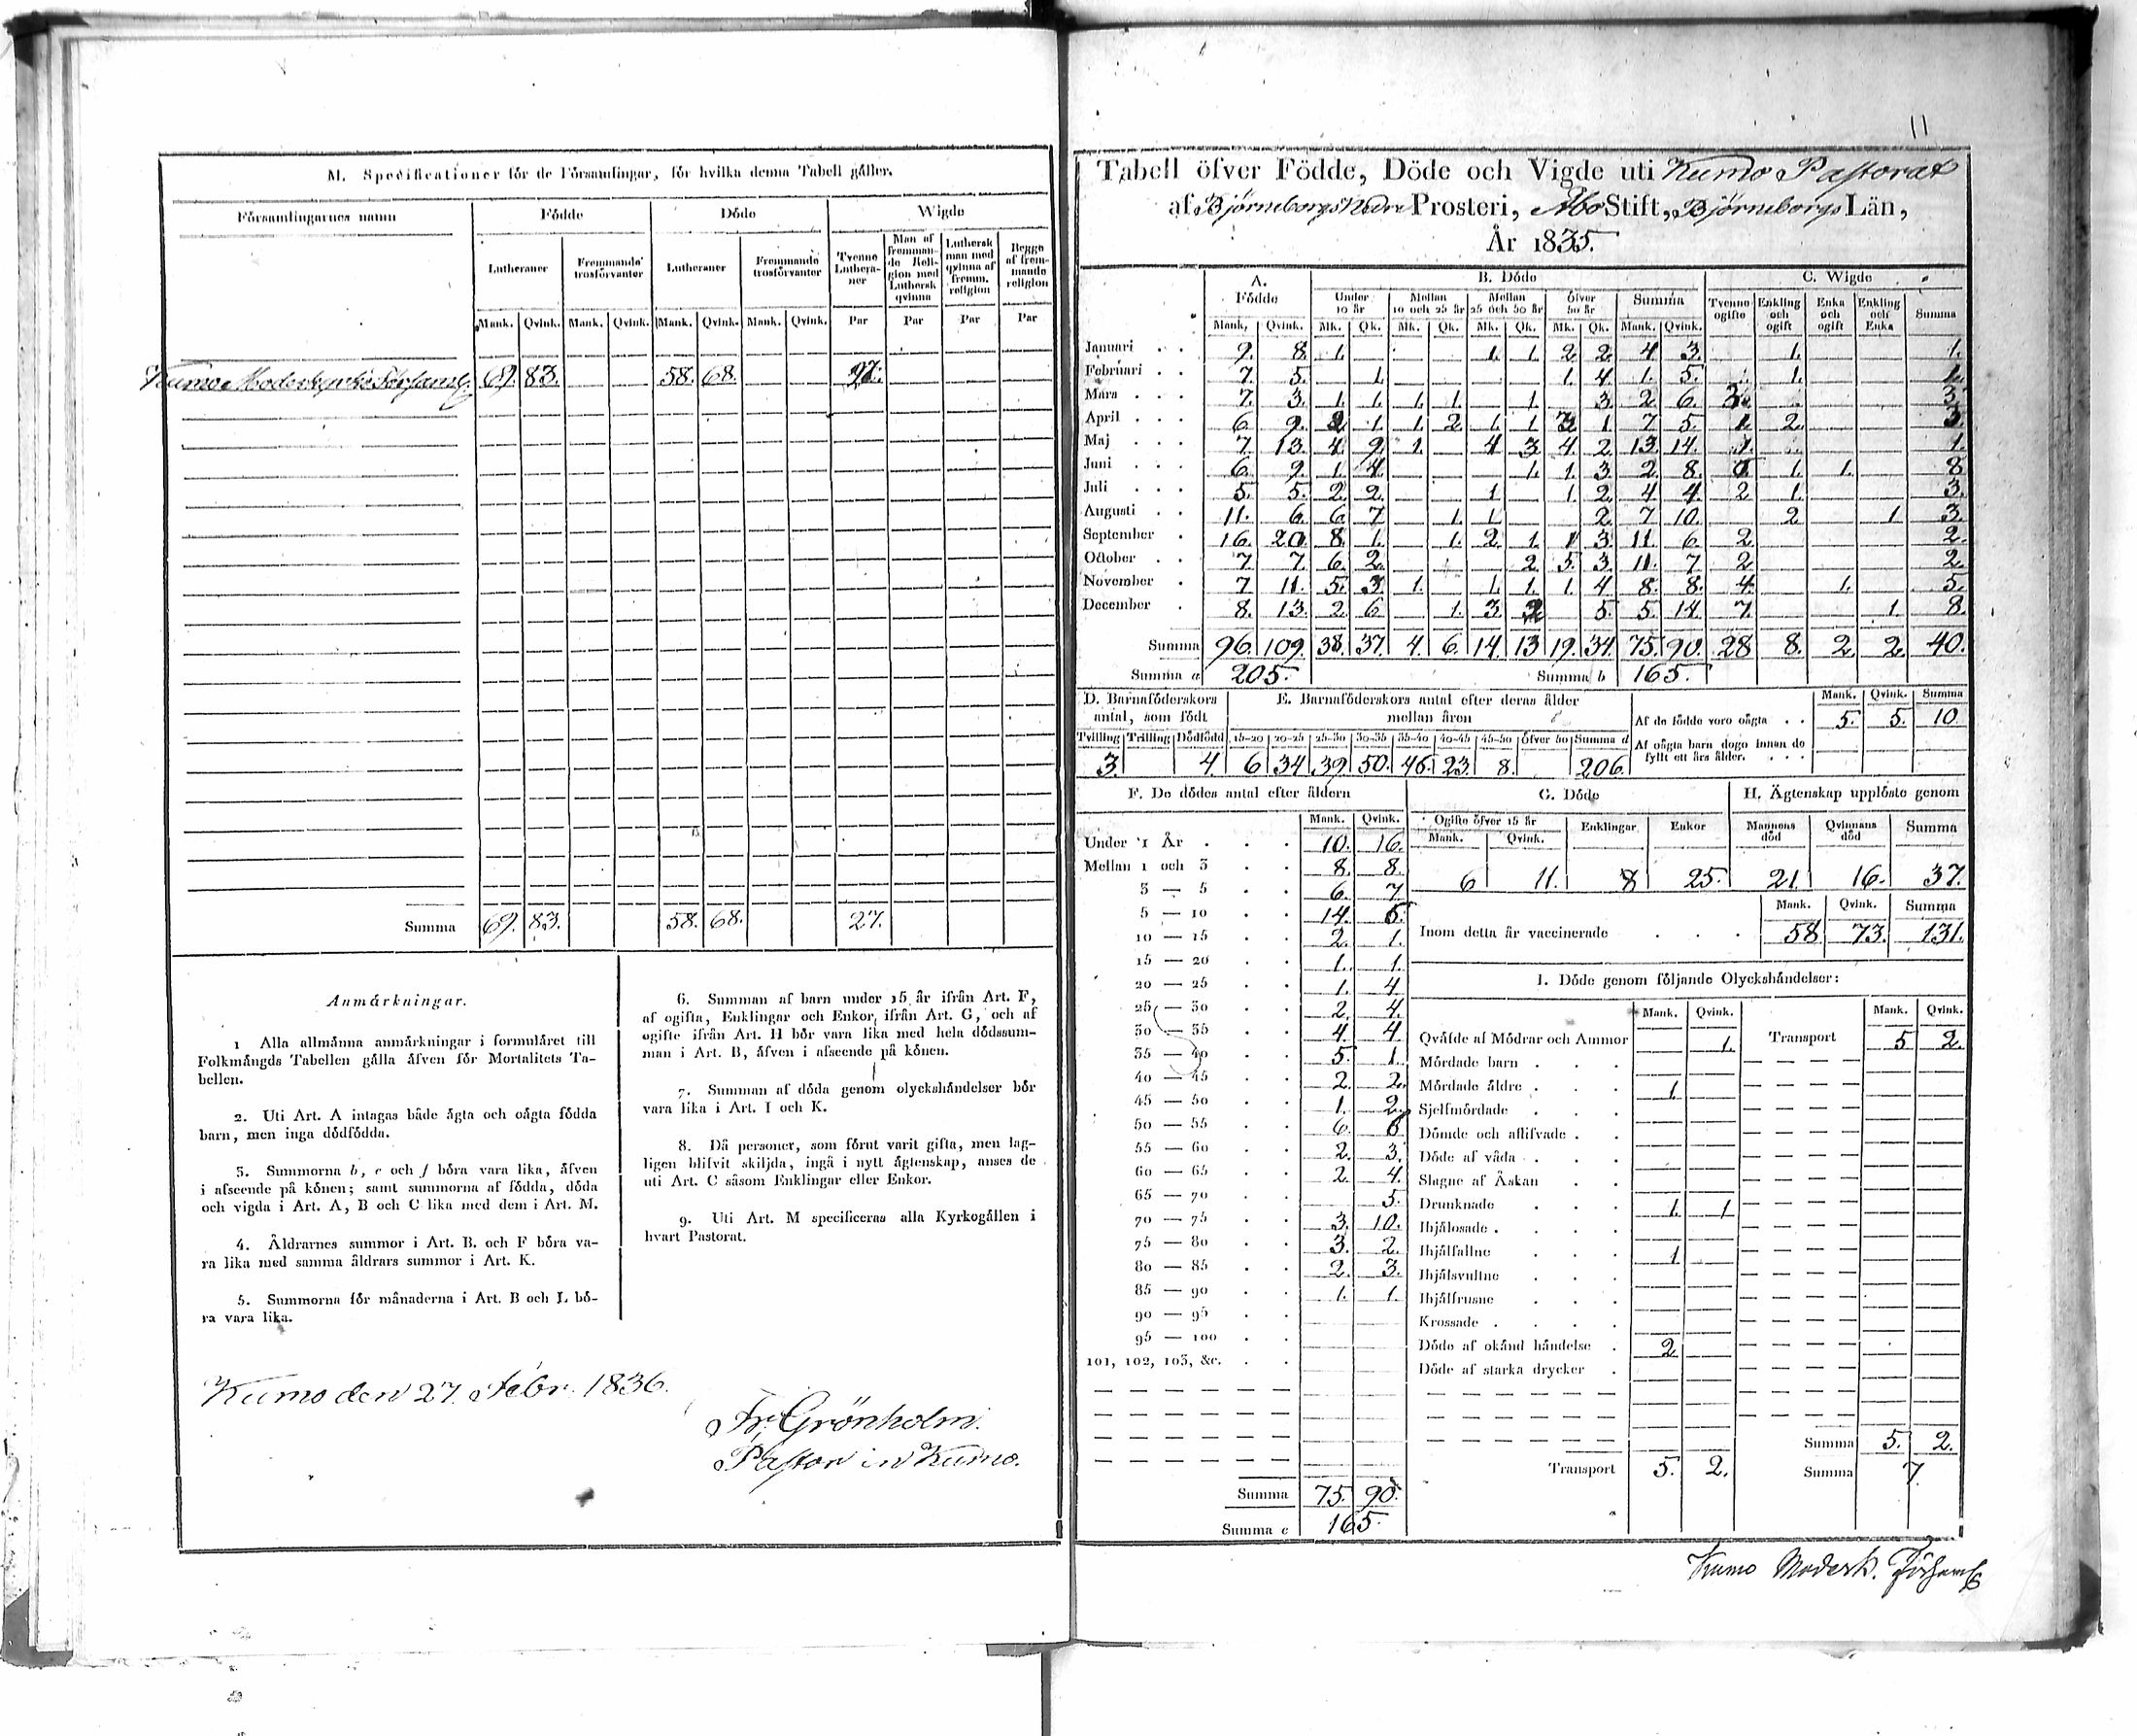 M. Specificationer för de Församlingar, för hvilka denna Tabell gäller.
Församlingarnes namn Födde Döde Wigde
Lutheraner Fremmande trosförvanter Lutheraner Fremmande trosförvanter Tvenne Lutheraner Man af fremmande Religion med Luthersk qvinna Luthersk man med qvinna af fremm. religion Begge af fremmande religion
Mank. Qvink. Mank. Qvink. Mank. Qvink. Mank. Qvink. Par Par Par Par
Kumo Moderkyrko Församl. 69. 83. 58. 68. 27.
Summa 69. 83. 58. 68. 27.
Anmärkningar.
1 Alla allmänna anmärkningar i formuläret till
Folkmängds Tabellen gälla äfven för Mortalitets Ta-
bellen.
2. Uti Art. A intagas både ägta och oägta födda
barn, men inga dödfödda.
3. Summorna b, c och f böra vara lika, äfven
i afseende på könen; samt summorna af födda, döda
och vigda i Art. A, B och C lika med dem i Art. M.
4. Åldrarnes summor i Art. B. och F böra va-
ra lika med samma åldrars summor i Art. K.
5. Summorna för månaderna i Art. B och L bö-
ra vara lika.
6. Summan af barn under 15 år ifrån Art. F,
af ogifta, Enklingar och Enkor, ifrån Art. G, och af
ogifte ifrån Art. H bör vara lika med hela dödssum-
man i Art. B, äfven i afseende på könen.
7. Summan af döda genom olyckshändelser bör
vara lika i Art. I och K.
8. Då personer, som förut varit gifta, men lag-
ligen blifvit skiljda, ingå i nytt ägtenskap, anses de
uti Art. C såsom Enklingar eller Enkor.
9. Uti Art. M specificeras alla Kyrkogällen i
hvart Pastorat.
Kumo den 27. Febr. 1836.
Fr. Grönholm.
Pastor in Kumo.
11
Tabell öfver Födde, Döde och Vigde uti Kumo Pastorat
af Björneborgs Nedre Prosteri, Åbo Stift, Björneborgs Län,
År 1835.
A. Födde B. Döde C. Wigde
Under 10 år Mellan 10 och 25 år Mellan 25 och 50 år öfver 50 år Summa Tvenne ogifte Enkling och ogift Enka och ogift Enkling och Enka Summa
Mank. Qvink. Mk. Qk. Mk. Qk. Mk. Qk. Mk. Qk. Mank. Qvink.
Januari 9. 8. 1. 1. 1. 2. 2. 4 3. 1. 1.
Februari 7. 5. 1. 1. 4. 1. 5. 1. 1.
Mars 7. 3. 1. 1. 1. 1. 1. 3. 2 6. 3. 3.
April 6 9. 2 1 1. 2 1. 1 3 1 7 5. 1. 2. 3.
Maj 7. 13. 4. 9. 1. 4 3 4. 2 13. 14. 1. 1.
Juni 6. 9. 1 4. 1. 1. 3. 2 8. 6. 1. 1. 8
Juli 5. 5. 2. 2. 1 1. 2. 4 4. 2 1. 3.
Augusti 11. 6. 6 7. 1. 1. 2. 7 10. 2 1 3.
September 16. 20. 8. 1. 1. 2. 1. 1 3. 11. 6 2. 2.
October 7. 7. 6 2. 2 5. 3 11. 7 2. 2.
November 7 11. 5. 3. 1. 1. 1. 1. 4 8. 8. 4. 1. 5.
December 8. 13. 2. 6. 1. 3. 2 5. 5. 14. 7. 1. 8.
Summa 96. 109. 38. 37. 4. 6. 14. 13 19. 34. 75. 90. 28 8. 2. 2. 40.
Summa a 205. Summa b 165.
D. Barnaföderskors antal, som födt
Tvilling Trilling Dödfödd
3. 4.
E. Barnaföderskors antal efter deras ålder mellan åren
15-20 20-25 25-30 30-35 35-40 40-45 45-50 öfver 50 Summa d
6 34 39 50. 46. 23. 8. 206.
Mank. Qvink. Summa
Af de födde voro oägta 5. 5. 10
Af oägta barn dogo innan de fyllt ett års ålder.
F. De dödes antal efter åldern
Mank. Qvink.
Under 1 År 10. 16.
Mellan 1 och 3 8. 8.
3 — 5 6. 7.
5 — 10 14. 6.
10 — 15 2. 1.
15 — 20 1. 1.
20 — 25 1. 4
25 — 30 2. 4.
30 — 35 4. 4
35 — 40 5. 1.
40 — 45 2. 2.
45 — 50 1. 2.
50 — 55 6. 6
55 — 60 2. 3.
60 — 65 2. 4.
65 — 70 5.
70 — 75 3. 10.
75 — 80 3. 2.
80 — 85 2. 3.
85 — 90 1. 1.
90 — 95
95 — 100
101, 102, 103, &c.
Summa 75. 90.
Summa c 165.
G. Döde
Ogifte öfver 15 år Enklingar Enkor
Mank. Qvink.
6 11. 8 25.
H. Ägtenskap upplöste genom
Mannens död Qvinnans död Summa
21. 16. 37.
Mank. Qvink. Summa
Inom detta år vaccinerade 58. 73. 131.
I. Döde genom följande Olyckshändelser:
Mank. Qvink. Mank. Qvink.
Qväfde af Mödrar och Ammor 1. Transport 5 2.
Mördade barn
Mördade äldre 1
Sjelfmördade
Dömde och aflifvade
Döde af våda
Slagne af Åskan
Drunknade 1. 1
Ihjälosade
Ihjälfallne 1
Ihjälsvultne
Ihjälfrusne
Krossade
Döde af okänd händelse 2
Döde af starka drycker
Summa 5. 2.
Transport 5. 2. Summa 7.
Kumo Moderk. Församl.